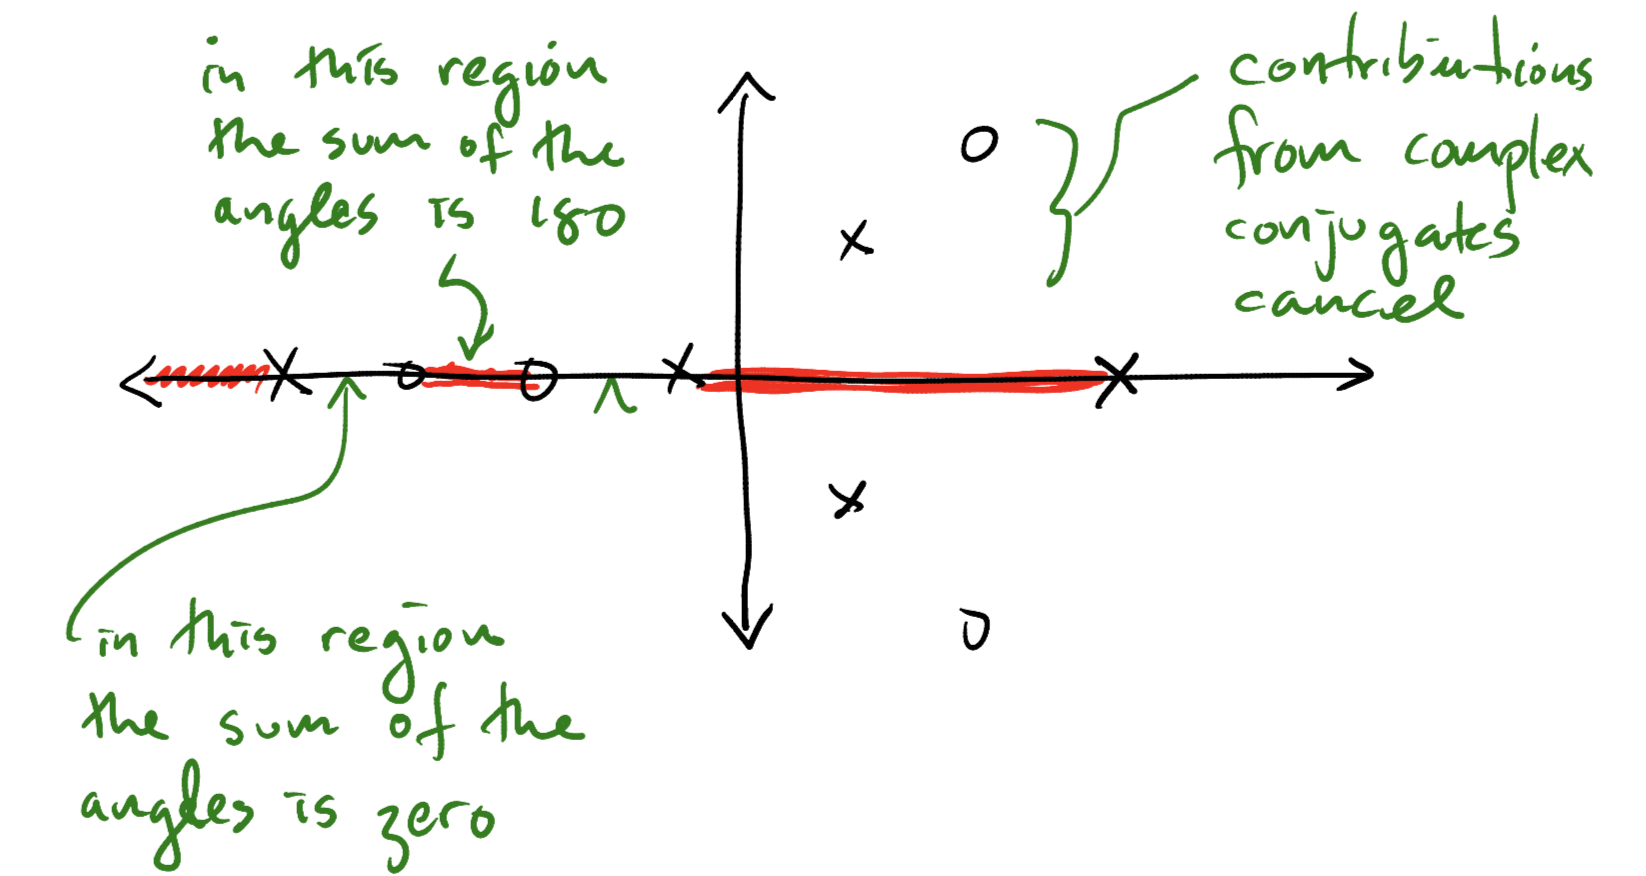 in this region
the sum of the
angles is 180
contributions
from complex
conjugates
cancel
in this region
the sum of the
angles is zero